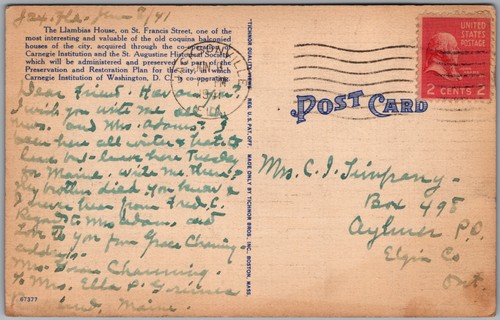 Jax, Fla. Jan 9/41
The Llambias House, on St. Francis Street, one of the
most interesting and valuable of the old coquina balconied
houses of the city, acquired through the co-operation of
Carnegie Institution and the St. Augustine Historical Society
which will be administered and preserved as part of the
Preservation and Restoration Plan for the city, in which
Carnegie Institution of Washington, D. C., is co-operating.
Dear Friend. How are you?
I wish you were me all
Mrs. and Mrs. Adams? I
been here all winter & hate to
leave but leave here Tuesday
for Maine. Write me there?
My brother died you know &
I never hear from Fred C.
Regards to Mrs Adam. and
Love to you from Grace Channing
address
Mrs. Channing
To Mrs. Ella L.
Maine.
67377
TICHNOR QUALITY VIEWS REG. U. S. PAT. OFF. MADE ONLY BY TICHNOR BROS., INC. BOSTON, MASS.
POST CARD
UNITED STATES
POSTAGE
2 CENTS 2
Mrs. C. I. Timpany
Box 498
Aylmer P.O.
Elgin Co
Ont.